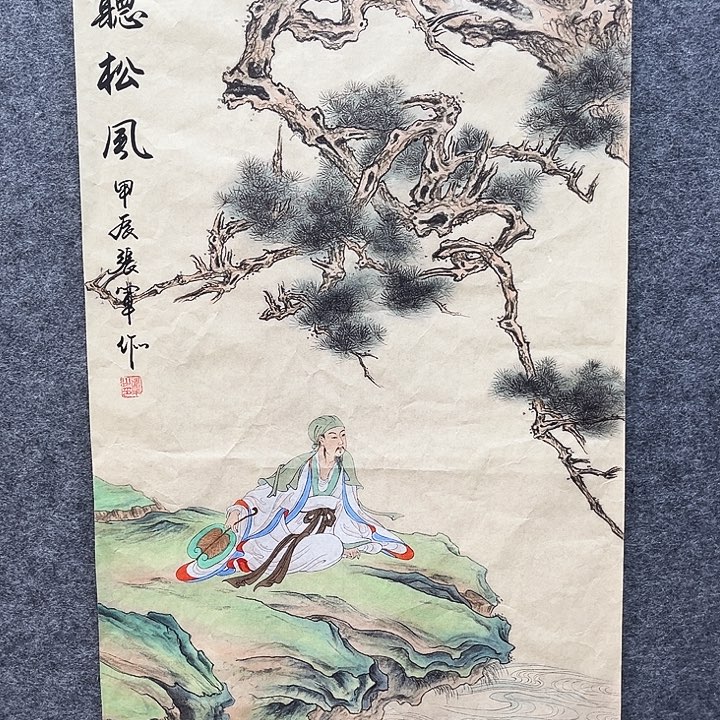 聽松風
甲辰張
作